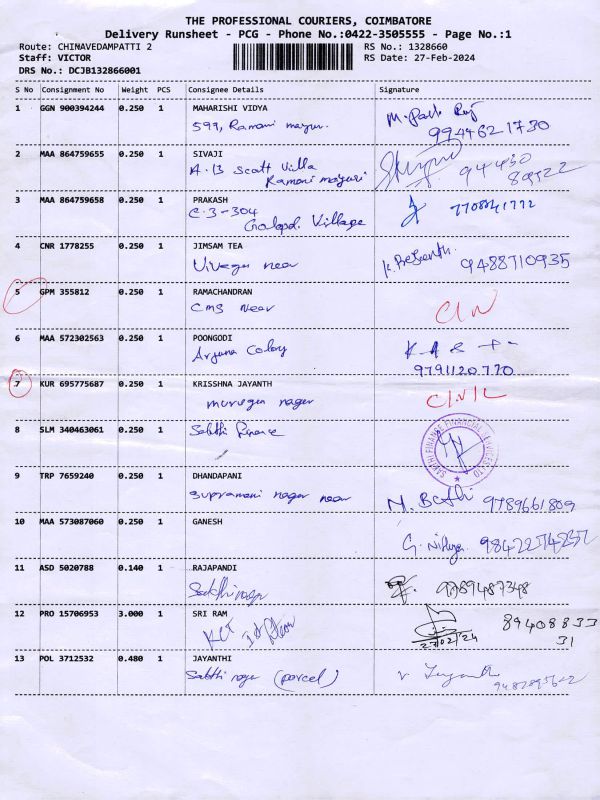 THE PROFESSIONAL COURIERS, COIMBATORE
Delivery Runsheet - PCG - Phone No.:0422-3505555 - Page No.:1
Route: CHINAVEDAMPATTI 2 RS No.: 1328660
Staff: VICTOR RS Date: 27-Feb-2024
DRS No.: DCJB132866001
S No Consignment No Weight PCS Consignee Details Signature
1 GGN 900394244 0.250 1 MAHARISHI VIDYA
599, Ramani
9944621730
2 MAA 864759655 0.250 1 SIVAJI
A.B Scott Villa
Ramani
94430
3 MAA 864759658 0.250 1 PRAKASH
C-3-304
Village
4 CNR 1778255 0.250 1 JIMSAM TEA
near
9488710935
5 GPM 355812 0.250 1 RAMACHANDRAN
CMS Near
6 MAA 572302563 0.250 1 POONGODI
Arjuna Colony
9791120770
7 KUR 695775687 0.250 1 KRISSHNA JAYANTH
murugan nagar
8 SLM 340463061 0.250 1 Sakthi Finance
SAKTHI FINANCE FINANCIAL
9 TRP 7659240 0.250 1 DHANDAPANI
nagar near
9789661809
10 MAA 573087060 0.250 1 GANESH
11 ASD 5020788 0.140 1 RAJAPANDI
Sakthi nagar
9789487348
12 PRO 15706953 3.000 1 SRI RAM
KCT
27/02/24
89408833
31
13 POL 3712532 0.480 1 JAYANTHI
Sakthi nagar (parcel)